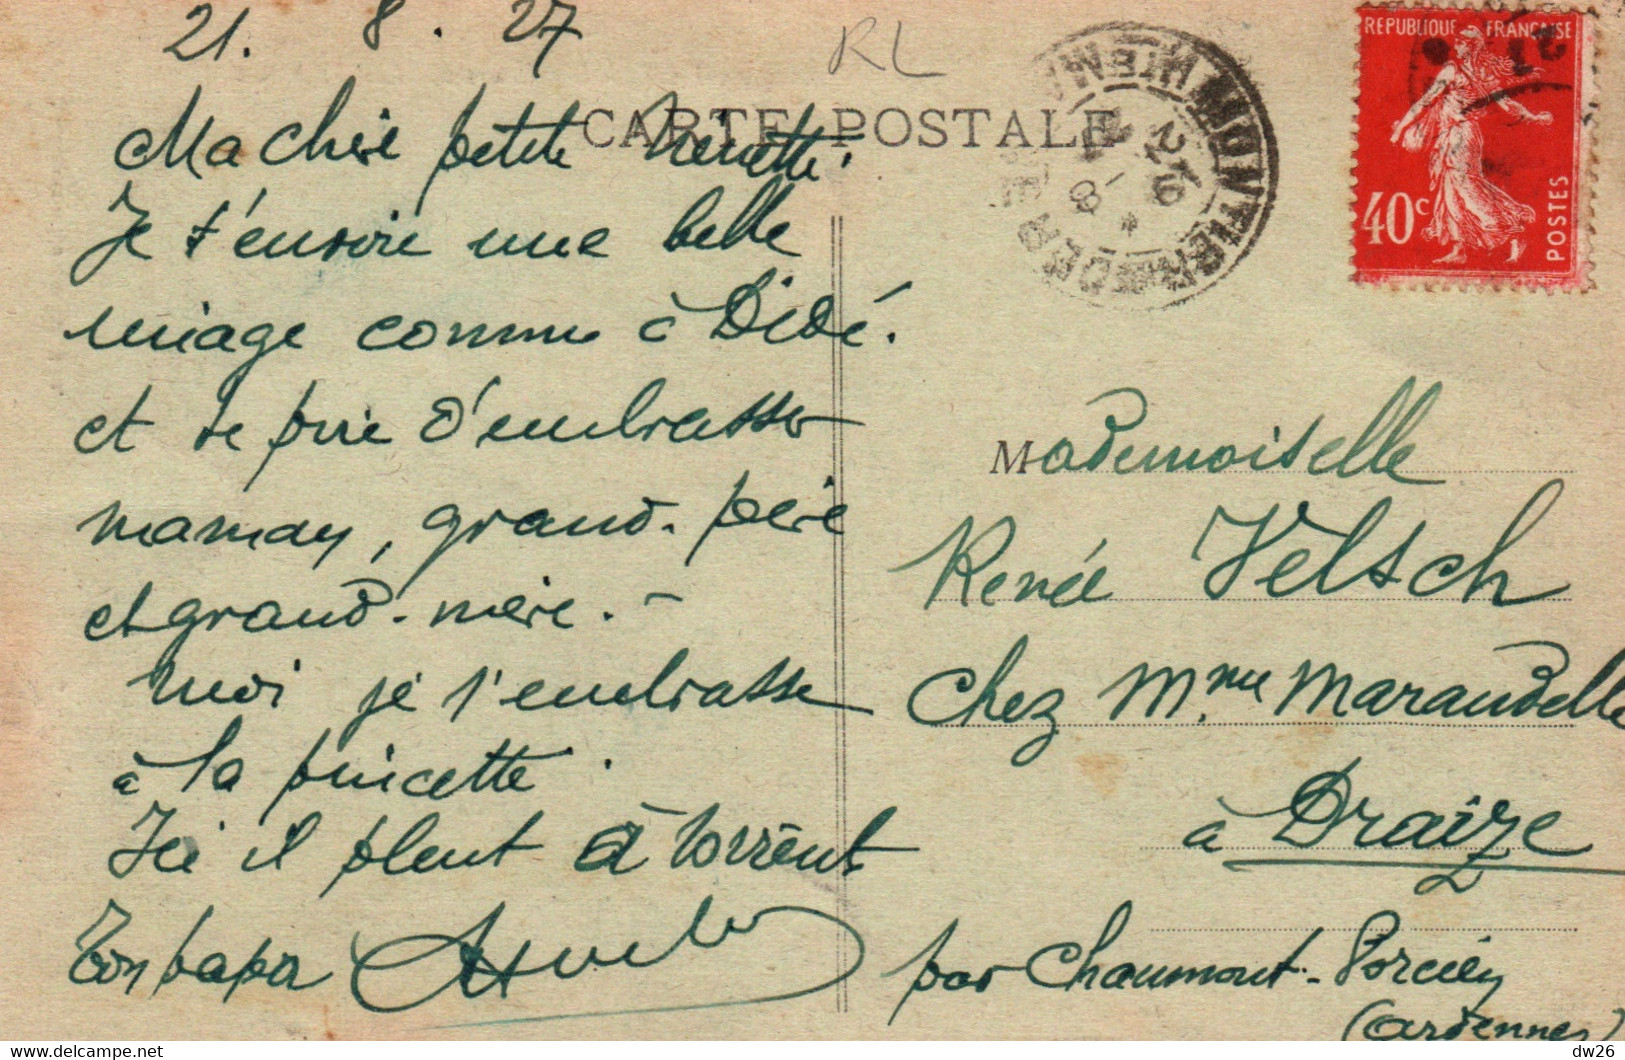 21. 8. 27
RL
CARTE POSTALE
REPUBLIQUE FRANÇAISE
40c
POSTES
MONTIER-EN-DER
Ma chère petite Nénette.
Je t'envoie une belle
image comme à Dédé.
et te prie d'embrasser
maman, grand-père
et grand-mère. -
Moi je t'embrasse
à la pincette.
Ici il pleut à torrent
Ton papa
Mademoiselle
Renée Velsch
Chez Mme Maraudelle
à Draize
par Chaumont-Porcien
(Ardennes)
dw26